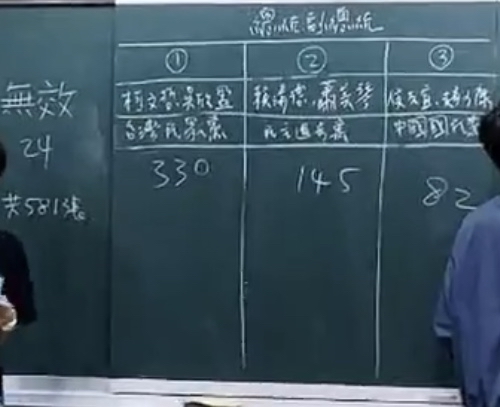 總統副總統
① ② ③
無效
柯文哲.吳欣盈 賴清德.蕭美琴 侯友宜.趙少康
24
台灣民眾黨 民主進步黨 中國國民黨
330 145 82
共581張